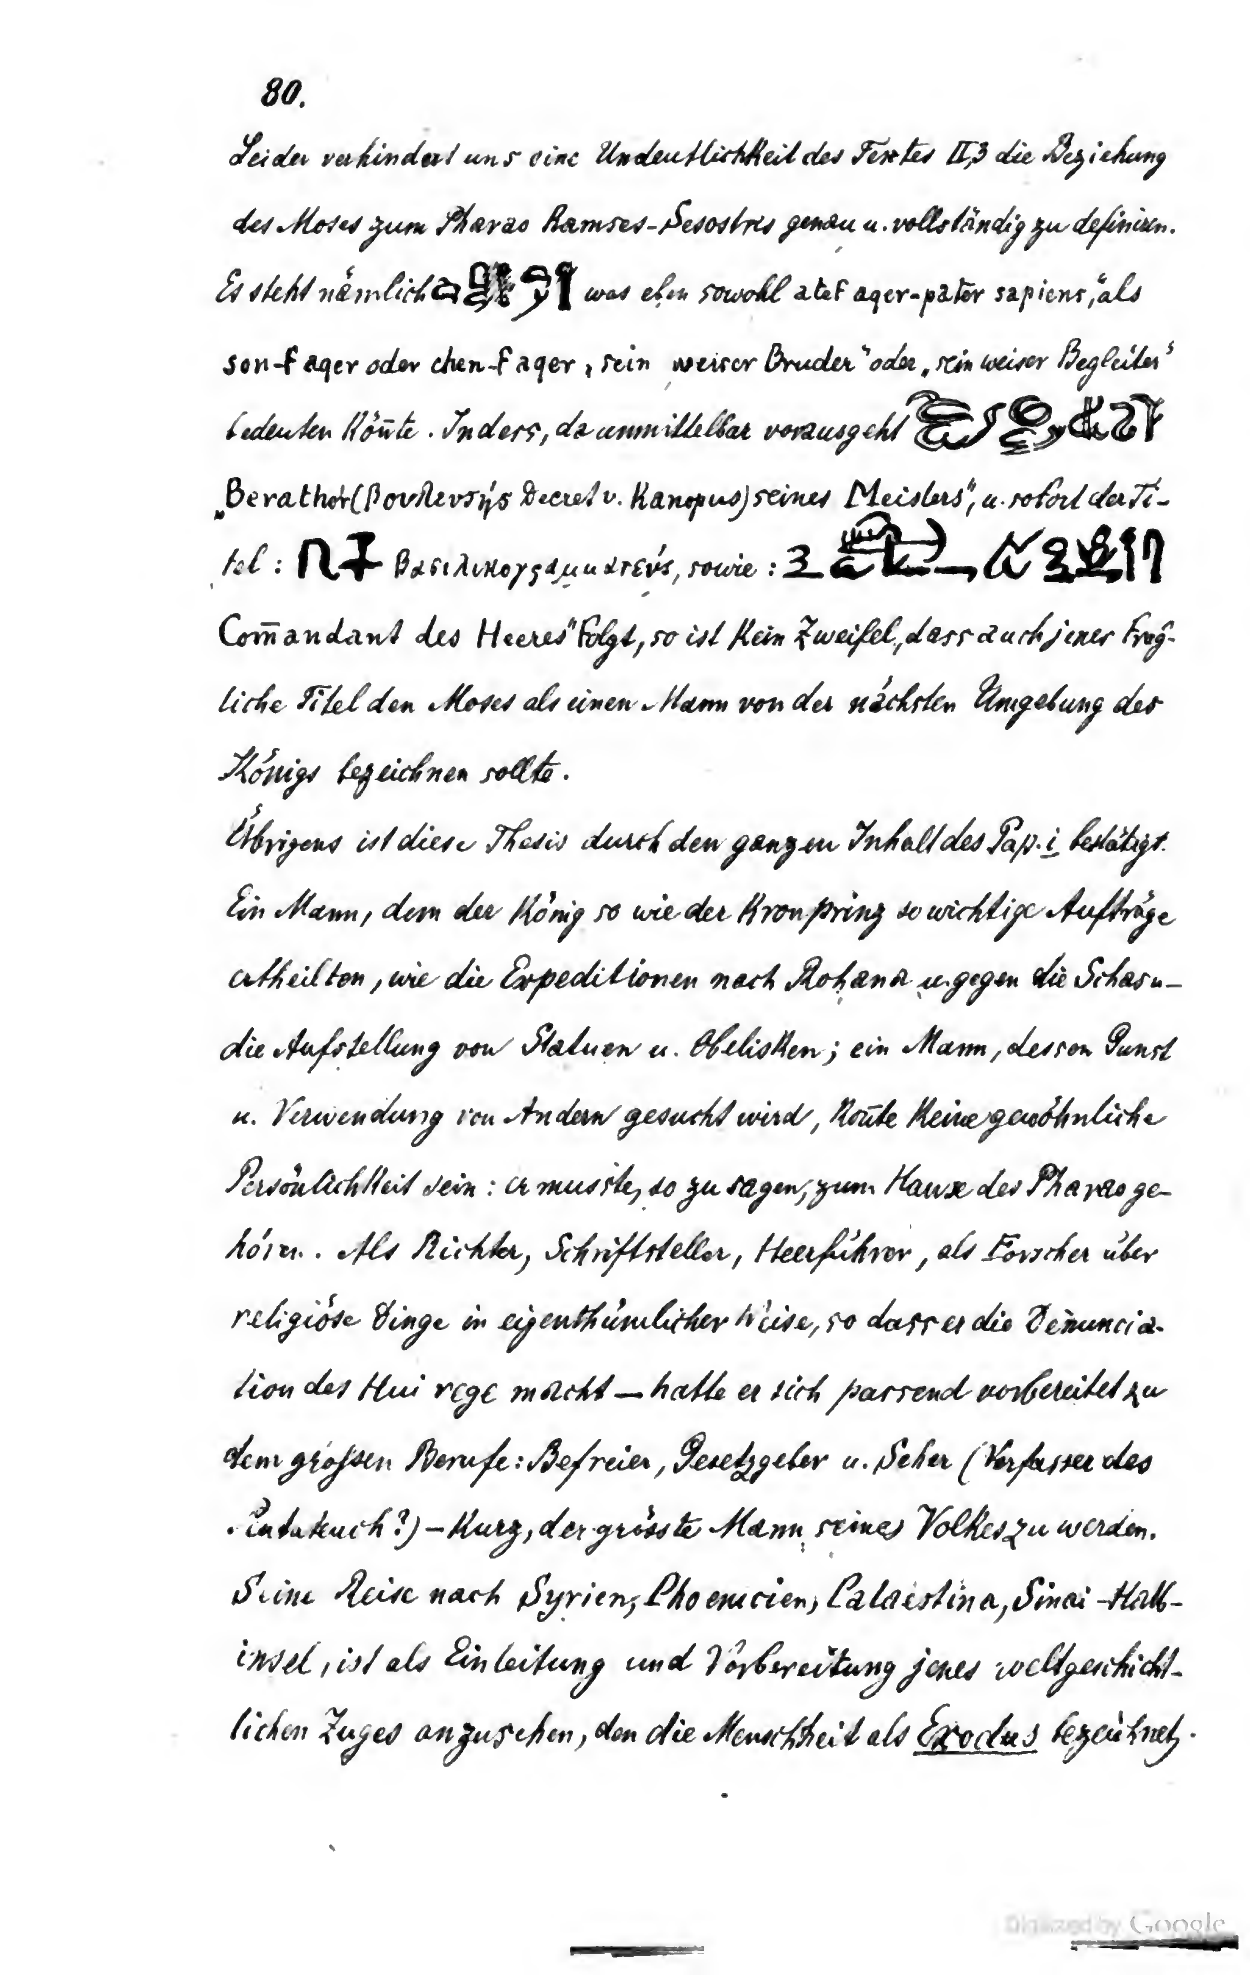 80.
Leider verhindert uns eine Undeutlichkeit des Textes II,3 die Beziehung
des Moses zum Pharao Ramses-Sesostris genau u. vollständig zu definiren.
Es steht nämlich was eben sowohl atef ager-pater sapiens," als
son-f ager oder chen-f ager, sein weiser Bruder" oder „sein weiser Begleiter"
bedeuten kön̄te. Indess, da unmittelbar vorausgeht
„Berather (βουλευτής Decret v. Kanopus) seines Meisters", u. sofort der Ti-
tel: βασιλικογραμματεύς, sowie:
Com̄andant des Heeres" folgt, so ist kein Zweifel, dass auch jener frag-
liche Titel den Moses als einen Mann von der nächsten Umgebung des
Königs bezeichnen sollte.
Übrigens ist diese Thesis durch den ganzen Inhalt des Pap. i bestätigt.
Ein Mann, dem der König so wie der Kronprinz so wichtige Aufträge
ertheilten, wie die Expeditionen nach Rohana u. gegen die Schasu-
die Aufstellung von Statuen u. Obelisken; ein Mann, dessen Gunst
u. Verwendung von Andern gesucht wird, kon̄te keine gewöhnliche
Persönlichkeit sein: er musste, so zu sagen, zum Hause des Pharao ge-
hören. Als Richter, Schriftsteller, Heerführer, als Forscher über
religiöse Dinge in eigenthümlicher Weise, so dass er die Denuncia-
tion des Hui rege macht — hatte er sich passend vorbereitet zu
dem grossen Berufe: Befreier, Gesetzgeber u. Seher (Verfasser des
Pentateuch?) – kurz, der grösste Mann seines Volkes zu werden.
Seine Reise nach Syrien, Phoenicien, Palaestina, Sinai-Halb-
insel, ist als Einleitung und Vorbereitung jenes weltgeschicht-
lichen Zuges anzusehen, den die Menschheit als Exodus bezeichnet.
Digitized by Google